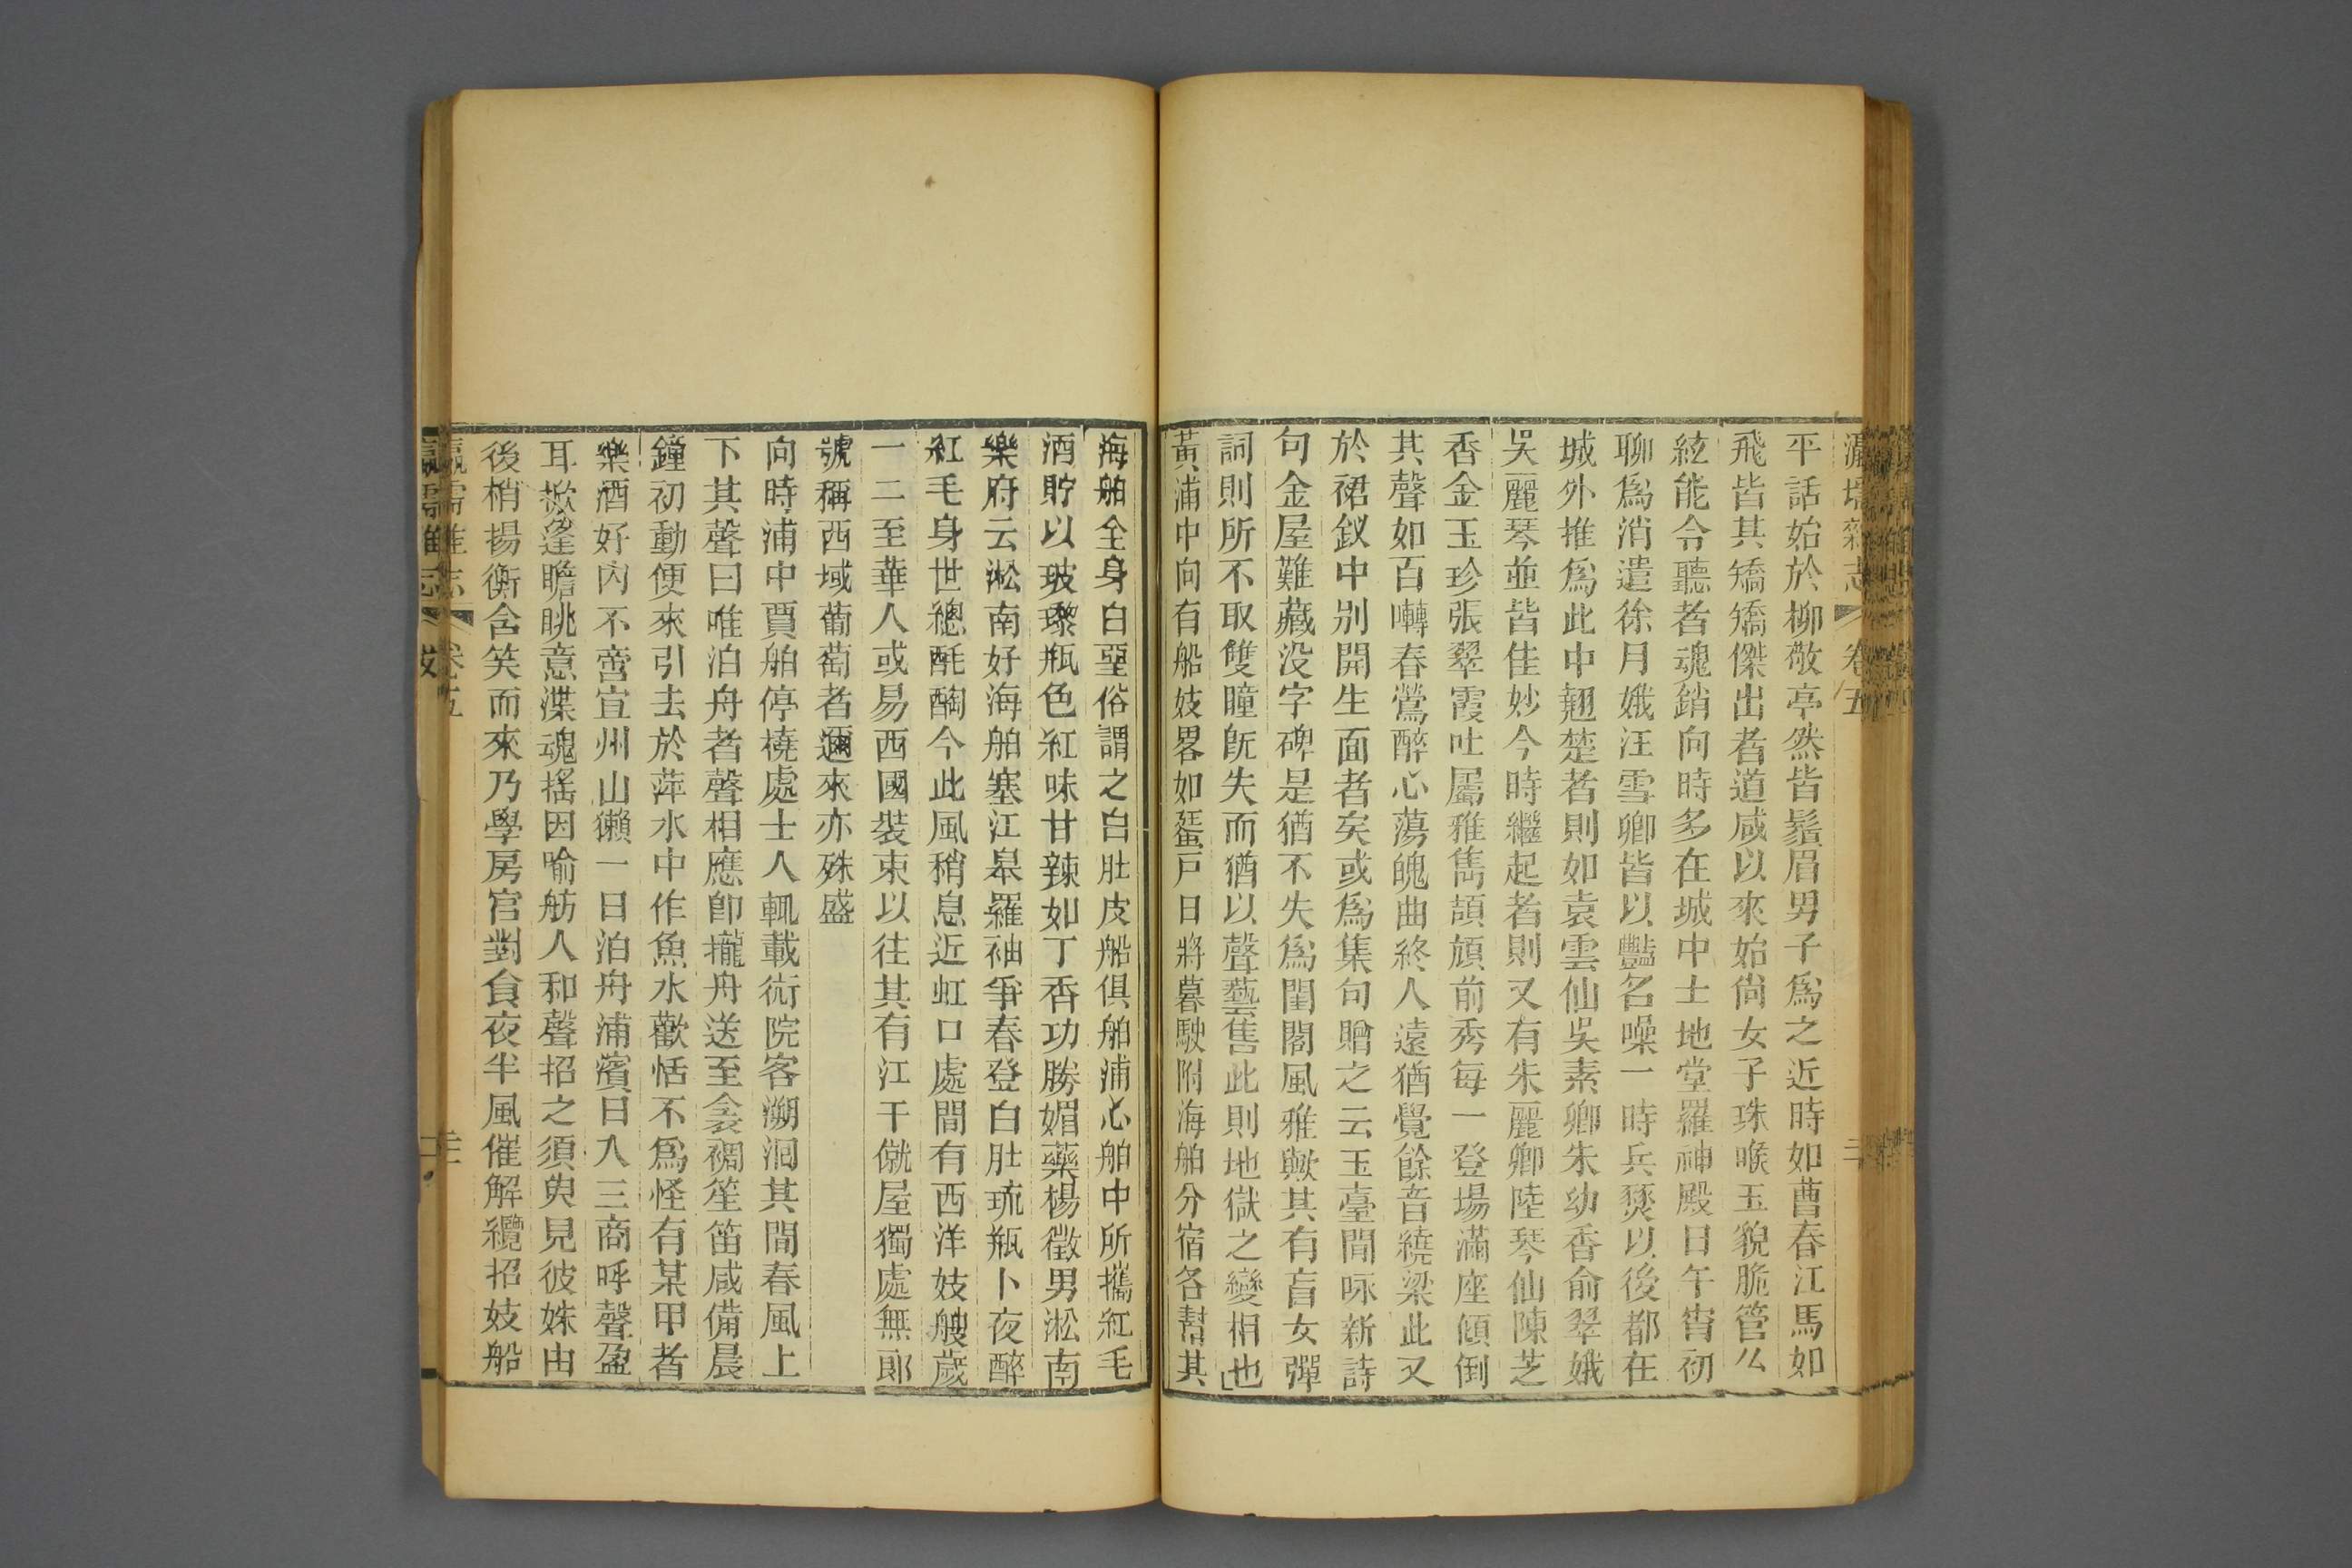 瀛壖雜志 卷五
平話始於柳敬亭然皆鬚眉男子爲之近時如曹春江馬如
飛皆其矯矯傑出者道咸以來始尙女子珠喉玉貌脆管么
絃能令聽者魂銷向時多在城中土地堂羅神殿日午宵初
聊爲消遣徐月娥汪雪卿皆以豔名噪一時兵燹以後都在
城外推爲此中翹楚者則如袁雲仙吳素卿朱幼香俞翠娥
吳麗琴並皆佳妙今時繼起者則又有朱麗卿陸琴仙陳芝
香金玉珍張翠霞吐屬雅雋頡頏前秀每一登場滿座傾倒
其聲如百囀春鶯醉心蕩魄曲終人遠猶覺餘音繞梁此又
於裙釵中別開生面者矣或爲集句贈之云玉臺閒咏新詩
句金屋難藏没字碑是猶不失爲閨閣風雅歟其有盲女彈
詞則所不取雙瞳旣失而猶以聲藝售此則地獄之變相也
黃浦中向有船妓畧如蜑戸日將暮駛附海舶分宿各幫其
海舶全身白堊俗謂之白肚皮船俱舶浦心舶中所攜紅毛
酒貯以玻瓈瓶色紅味甘辣如丁香功勝媚藥楊徵男淞南
樂府云淞南好海舶塞江皋羅袖爭春登白肚琉瓶卜夜醉
紅毛身世總酕醄今此風稍息近虹口處間有西洋妓艘歲
一二至華人或易西國裝束以往其有江干僦屋獨處無郎
號稱西域葡萄者邇來亦殊盛
向時浦中賈舶停橈處士人輒載衏院客溯洄其間春風上
下其聲曰唯泊舟者聲相應卽攏舟送至衾裯笙笛咸備晨
鐘初動便來引去於萍水中作魚水歡恬不爲怪有某甲者
樂酒好內不啻宣州山獺一日泊舟浦濱日入三商呼聲盈
耳掀篷瞻眺意渫魂搖因喻舫人和聲招之須臾見彼姝由
後梢揚衡含笑而來乃學房官對食夜半風催解纜招妓船
瀛壖雜志 卷五